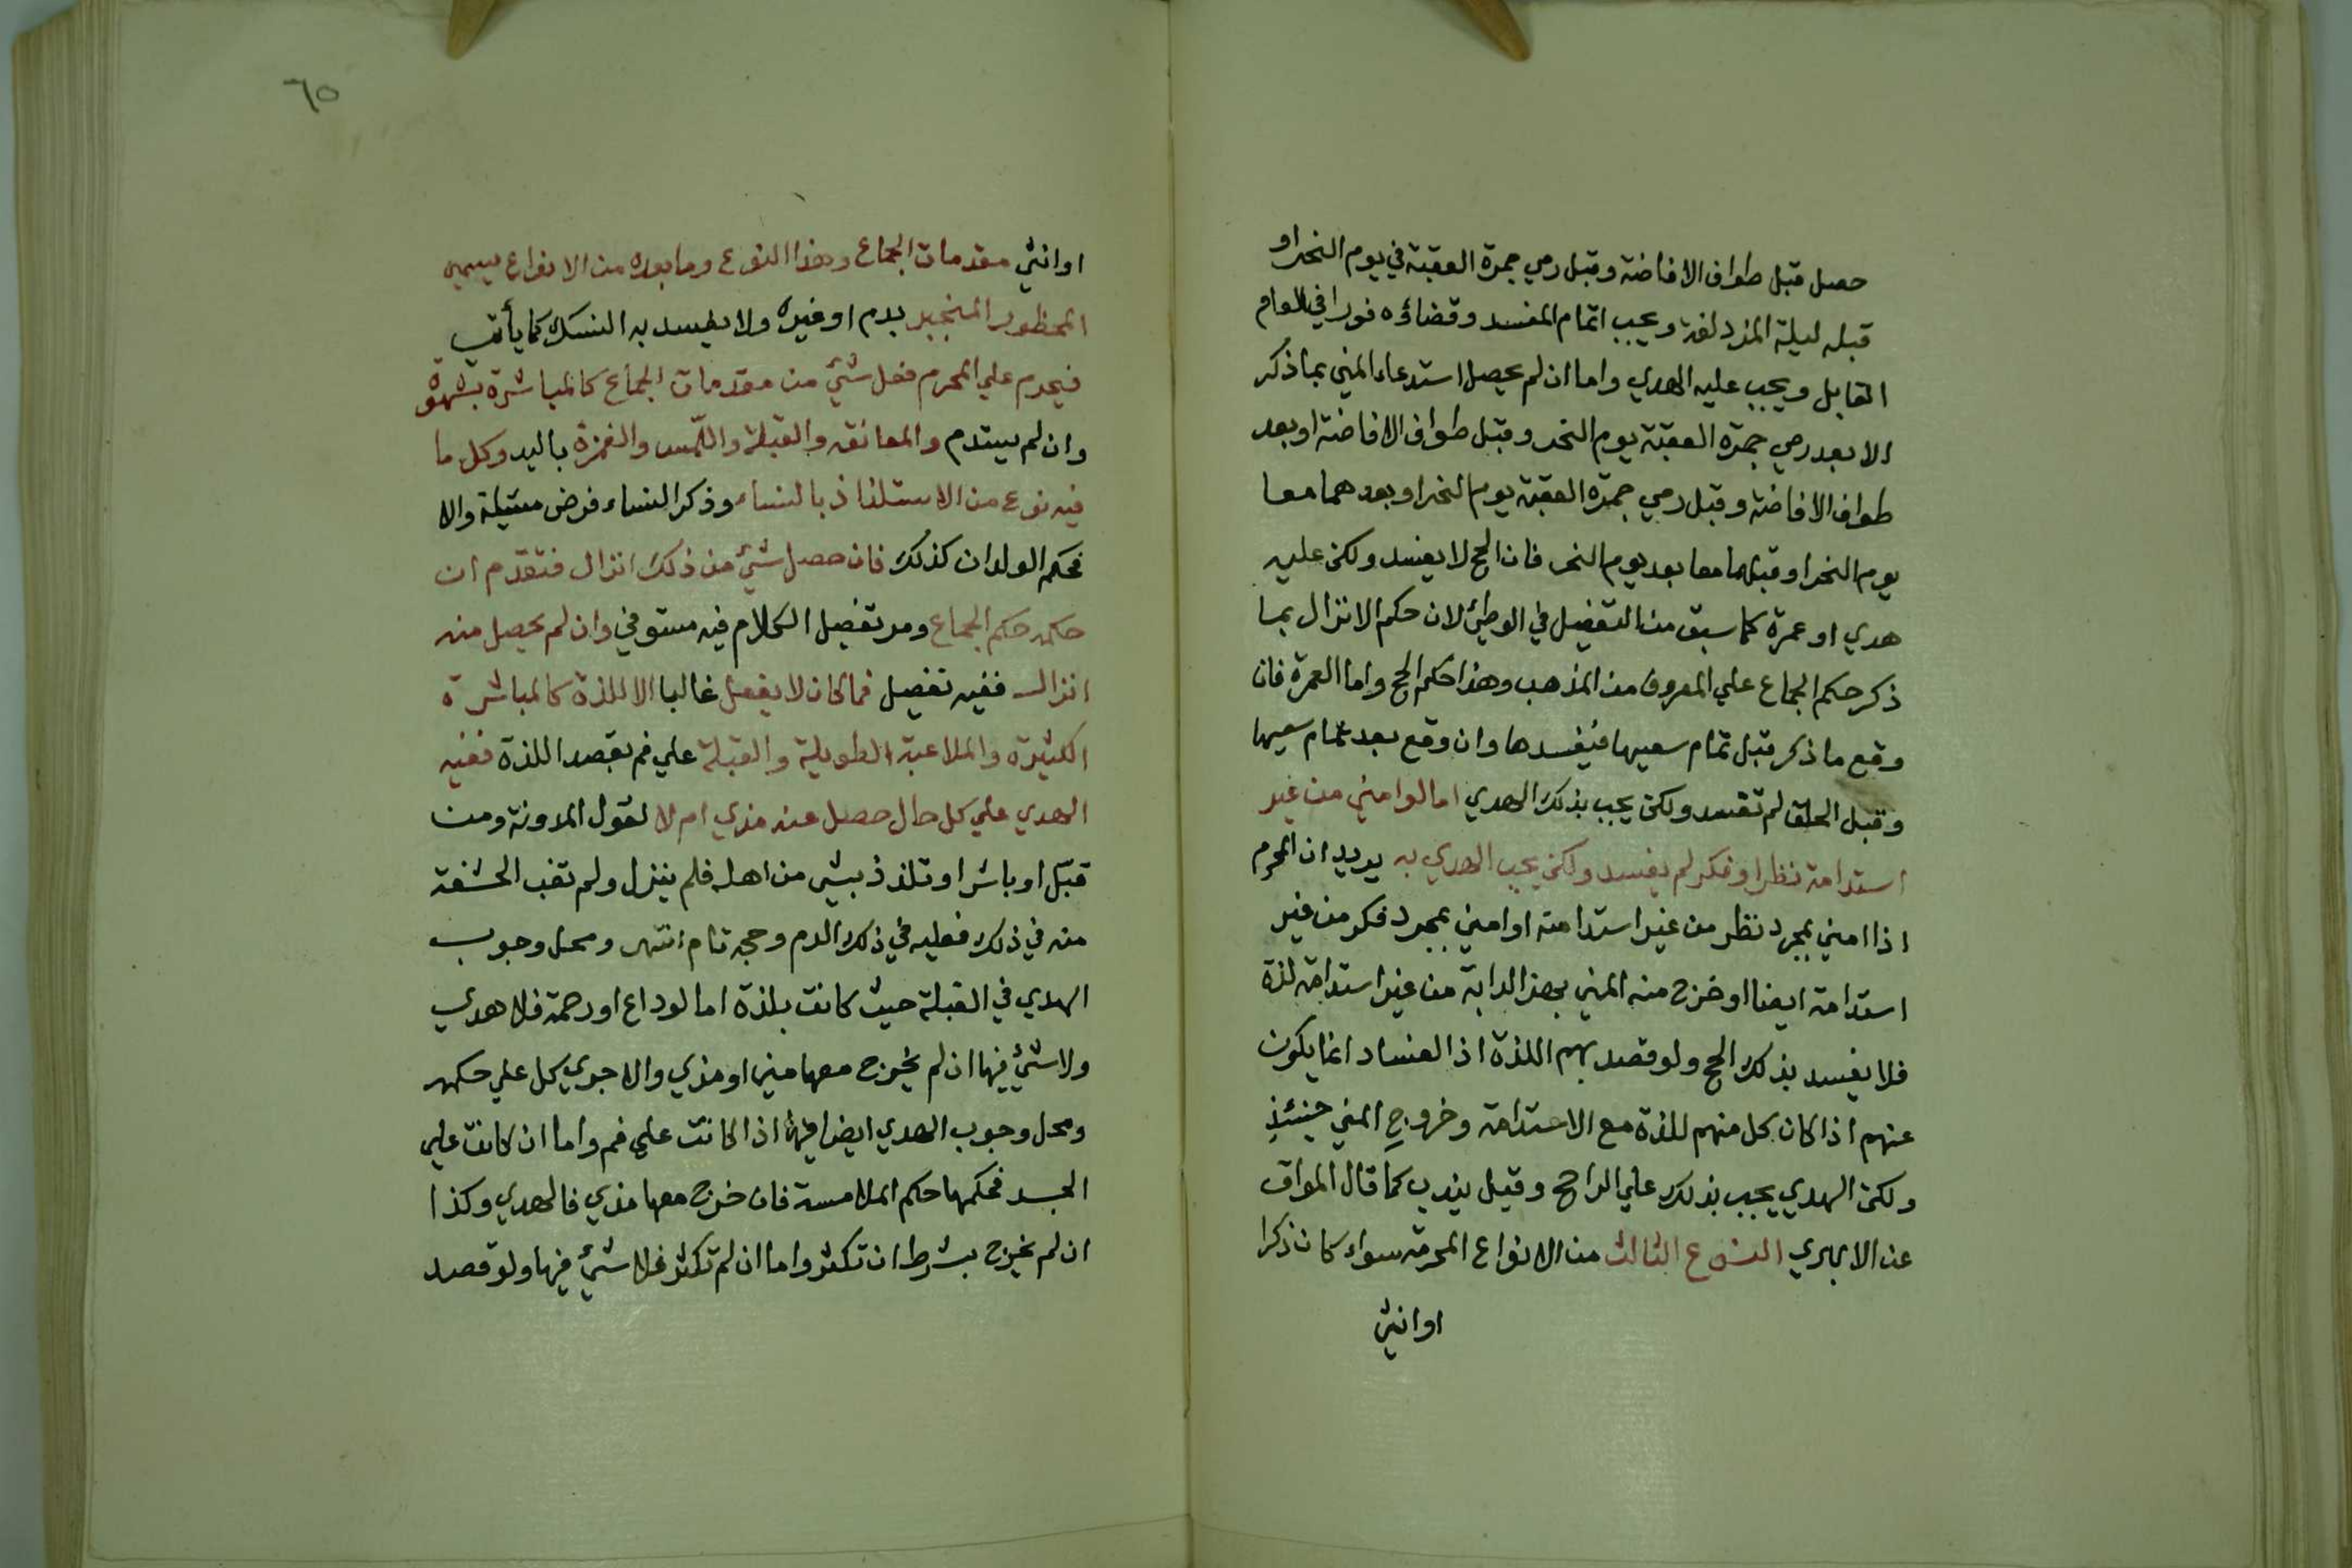 حصل قبل طواف الافاضة وقبل رمي جمرة العقبة في يوم النحر او
قبله ليلة المزدلفة ويجب اتمام المفسد وقضاؤه فورا في العام
القابل ويجب عليه الهدي واما ان لم يحصل استدعاء المني بما ذكر
الا بعد رمي جمرة العقبة يوم النحر وقبل طواف الافاضة او بعد
طواف الافاضة وقبل رمي جمرة العقبة يوم النحر او بعدهما معا
يوم النحر او قبلهما معا بعد يوم النحر فان الحج لا يفسد ولكن عليه
هدي او عمرة كما سبق من التفصيل في الوطئ لان حكم الانزال بما
ذكر حكم الجماع علي المعروف من المذهب وهذا حكم الحج واما العمرة فان
وقع ما ذكر قبل تمام سعيها فيفسدها وان وقع بعد تمام سعيها
وقبل الحلق لم تفسد ولكن يجب بذلك الهدي اما لو امني من غير
استدامة نظر او فكر لم يفسد ولكن يجب الهدي به يريد ان المحرم
اذا امني بمجرد نظر من غير استدامته او امني بمجرد فكر من غير
استدامة ايضا او خرج منه المني بهز الدابة من غير استدامة لذة
فلا يفسد بذلك الحج ولو قصد بهم اللذة اذ الفساد انما يكون
عنهم اذا كان كل منهم للذة مع الاستدامة وخروج المني حينئذ
ولكن الهدي يجب بذلك علي الراجح وقيل يندب كما قال المواق
عن الابهري النوع الثالث من الانواع المحرمة سواء كان ذكرا
او انثي
٦٥
او انثي مقدمات الجماع وهذا النوع وما بعده من الانواع يسمي
المحظور المنجبر بدم او غيره ولا يفسد به النسك كما يأتي
فيحرم علي المحرم فعل شئ من مقدمات الجماع كالمباشرة بشهوة
وان لم يستدم والمعانقه والقبلة واللمس والغمزة باليد وكل ما
فيه نوع من الاستلذاذ بالنساء وذكر النساء فرض مسئلة والا
فحكم الولدان كذلك فان حصل شئ من ذلك انزال فتقدم ان
حكمه حكم الجماع ومر تفصيل الكلام فيه مستوفي وان لم يحصل منه
انزال ففيه تفصيل فما كان لا يفعل غالبا الا للذة كالمباشرة
الكثيرة والملاعبة الطويلة والقبلة علي فم بقصد اللذة ففيه
الهدي علي كل حال حصل عنه مذي ام لا لقول المدونة ومن
قبل او باشر او تلذذ بشي من اهله فلم ينزل ولم تغب الحشفة
منه في ذلك فعليه في ذلك الدم وحجه تام انتهي ومحل وجوب
الهدي في القبلة حيث كانت بلذة اما لوداع او رحمة فلا هدي
ولا شئ فيها ان لم يخرج معها مني او مذي والا جري كل علي حكمه
ومحل وجوب الهدي ايضا فيها اذا كانت علي فم واما ان كانت علي
الجسد فحكمها حكم الملامسة فان خرج معها مذي فالهدي وكذا
ان لم يخرج بشرط ان تكثر واما ان لم تكثر فلا شئ فيها ولو قصد